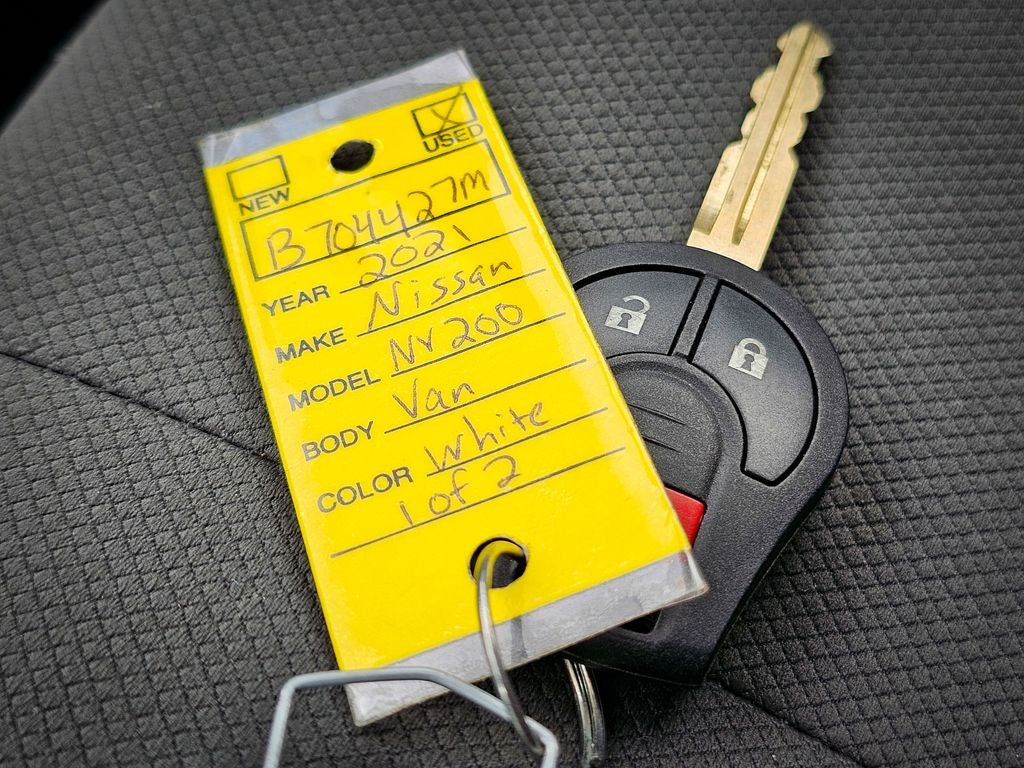 NEW USED
B704427M
YEAR 2021
MAKE Nissan
MODEL NV200
BODY Van
COLOR White
1 of 2